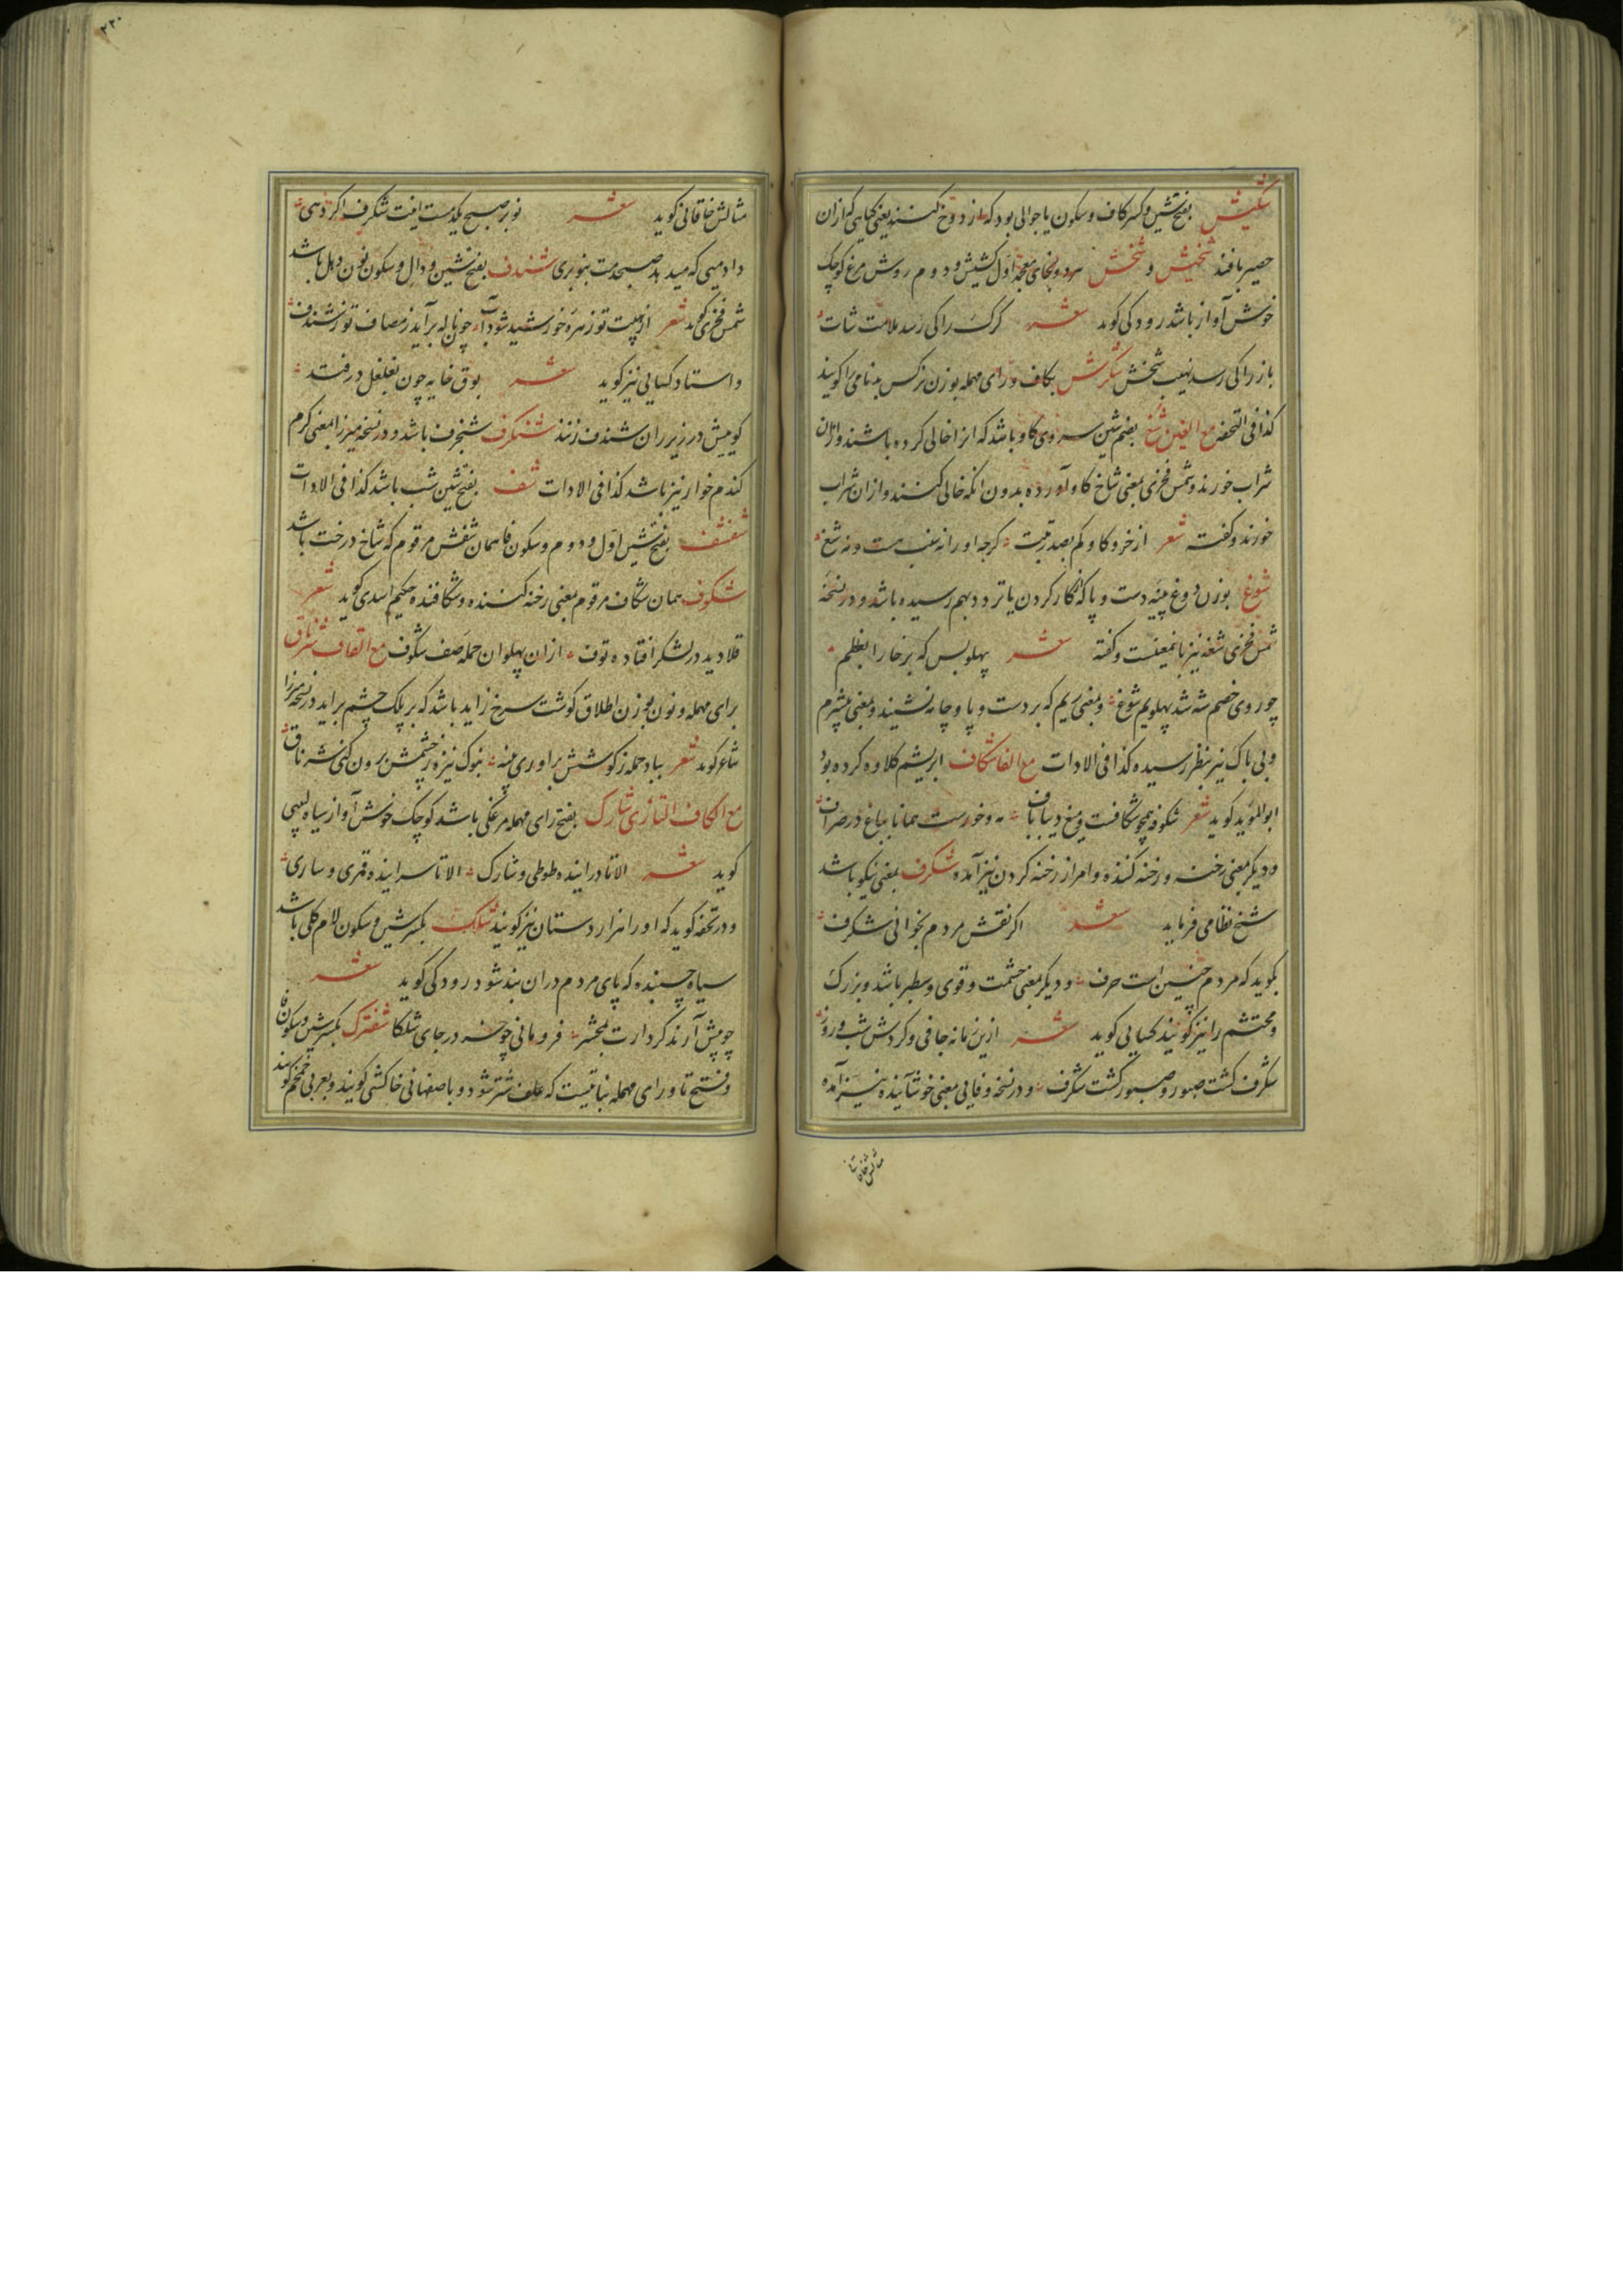 شکیش بفتح شین و کسر کاف و سکون یا جوالی بود که از دوخ کنند یعنی گیاهی که ازان
حصیر بافند شخیش و شخش هردو بخای معجمه اول کشیش و دوم روش مرغ کوچک
خوش آواز باشد رودکی کوید شعر کرک را کی رسد ملامت شات
باز را کی رسد نهیب شخش شکرش بکاف و رای مهمله بوزن نرکس بدنامی را کویند
کذا فی التحفه مع الغین شغ بضم شین سروی کاو باشد که انرا خالی کرده باشند و ازان
شراب خورند و شمس فخری بمعنی شاخ کاو آورده بدون انکه خالی کنند و ازان شراب
خورند و کفته شعر از خر و کاو کم بصد رتبت کرچه او را نه ذنب هست و نه شغ
شوغ بوزن دوغ پینه دست و پا که از کار کردن یا تردد بهم رسیده باشد و در نسخهٔ
شمس فخری شغه نیز بانمعنیست و کفته شعر پهلو بس که بر خارا بغلطم
چو روی خصم شه شد پهلویم شوغ و بمعنی ریم که بر دست و پا و جامه نشیند و بمعنی بیشرم
و بی باک نیز بنظر رسیده کذا فی الادات مع الفا شکاف ابریشم کلاوه کرده بود
ابوالموید کوید شعر شکوفه همچو شکافت و میغ دیباباف مه و خورست همانا بباغ در صراف
و دیکر بمعنی رخنه و رخنه کننده و امر از رخنه کردن نیز آمده شکرف بمعنی نیکو باشد
شیخ نظامی فرماید شعر اکر نقش مردم بخوانی شکرف
بکوید که مردم چنین است حرف و دیکر بمعنی حشمت و قوی و سطبر باشد و بزرک
و محتشم را نیز کویند کسایی کوید شعر ازین زمانه جافی و کردش شب و روز
شکرف کشت صبور و صبور کشت شکرف و در نسخه وفایی بمعنی خوشآینده نیز آمده
مثالش خاقانی
۲۲۰
مثالش خاقانی کوید شعر نوبر صبح یکدمست اینت شکرف اکر دهی
داد دمی که میدهد صبحدمت بنوبری شندف بفتح شین و دال و سکون نون دهل باشد
شمس فخری کوید شعر از هیبت تو زهره خورشید شود آب چو ناله برآید ز مصاف تو ز شندف
و استاد کسایی نیز کوید شعر بوق خایه چون بغلغل درفتد
کومیش در زیر ران شندف زنند شنکرف شنجرف باشد و در نسخه میرزا بمعنی کرم
کندم خوار نیز باشد کذا فی الادات شف بفتح شین شب باشد کذا فی الادات
شفشف بفتح شین اول و دوم و سکون فا همان شفش مرقوم که شاخ درخت باشد
شکوف همان شکاف مرقوم بمعنی رخنه کننده و شکافنده حکیم اسدی کوید شعر
قلا دید در لشکر افتاده توف ازان پهلوان حمله صف شکوف مع القاف شرناق
برای مهمله و نون بوزن اطلاق کوشت سرخ زاید باشد که بر پلک چشم براید در نسخه میرزا
شاعر کوید شعر بباد حمله ز کوشش براوری پنبه بنوک نیزه ز چشمش برون کنی شرناق
مع الکاف التازی شارک بفتح رای مهمله مرغکی باشد کوچک خوش آواز سیاه لبیبی
کوید شعر الا تا دراینده طوطی و شارک الا تا سراینده قمری و ساری
و در تحفه کوید که او را هزاردستان نیز کویند شلک بکسر شین و سکون لام کلی باشد
سیاه چسبنده که پای مردم دران بند شود رودکی کوید شعر
چو پیش آرند کردارت بمحشر فرومانی چو خر در جای شلکا شفترک بکسر شین و سکون فا
و فتح تا و رای مهمله نباتیست که علف شتر شود و باصفهانی خاکشی کویند و بعربی خمخم کویند